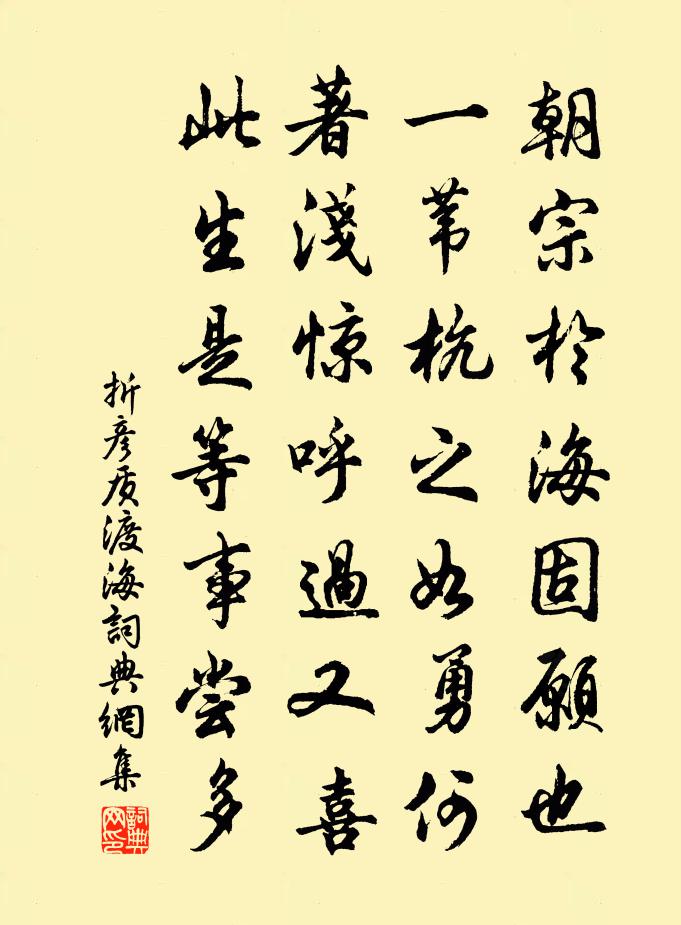 朝宗於海固願也
一苇杭之如勇何
著淺惊呼過又喜
此生是等事尝多
折彦质渡海詞典網集
詞典网印